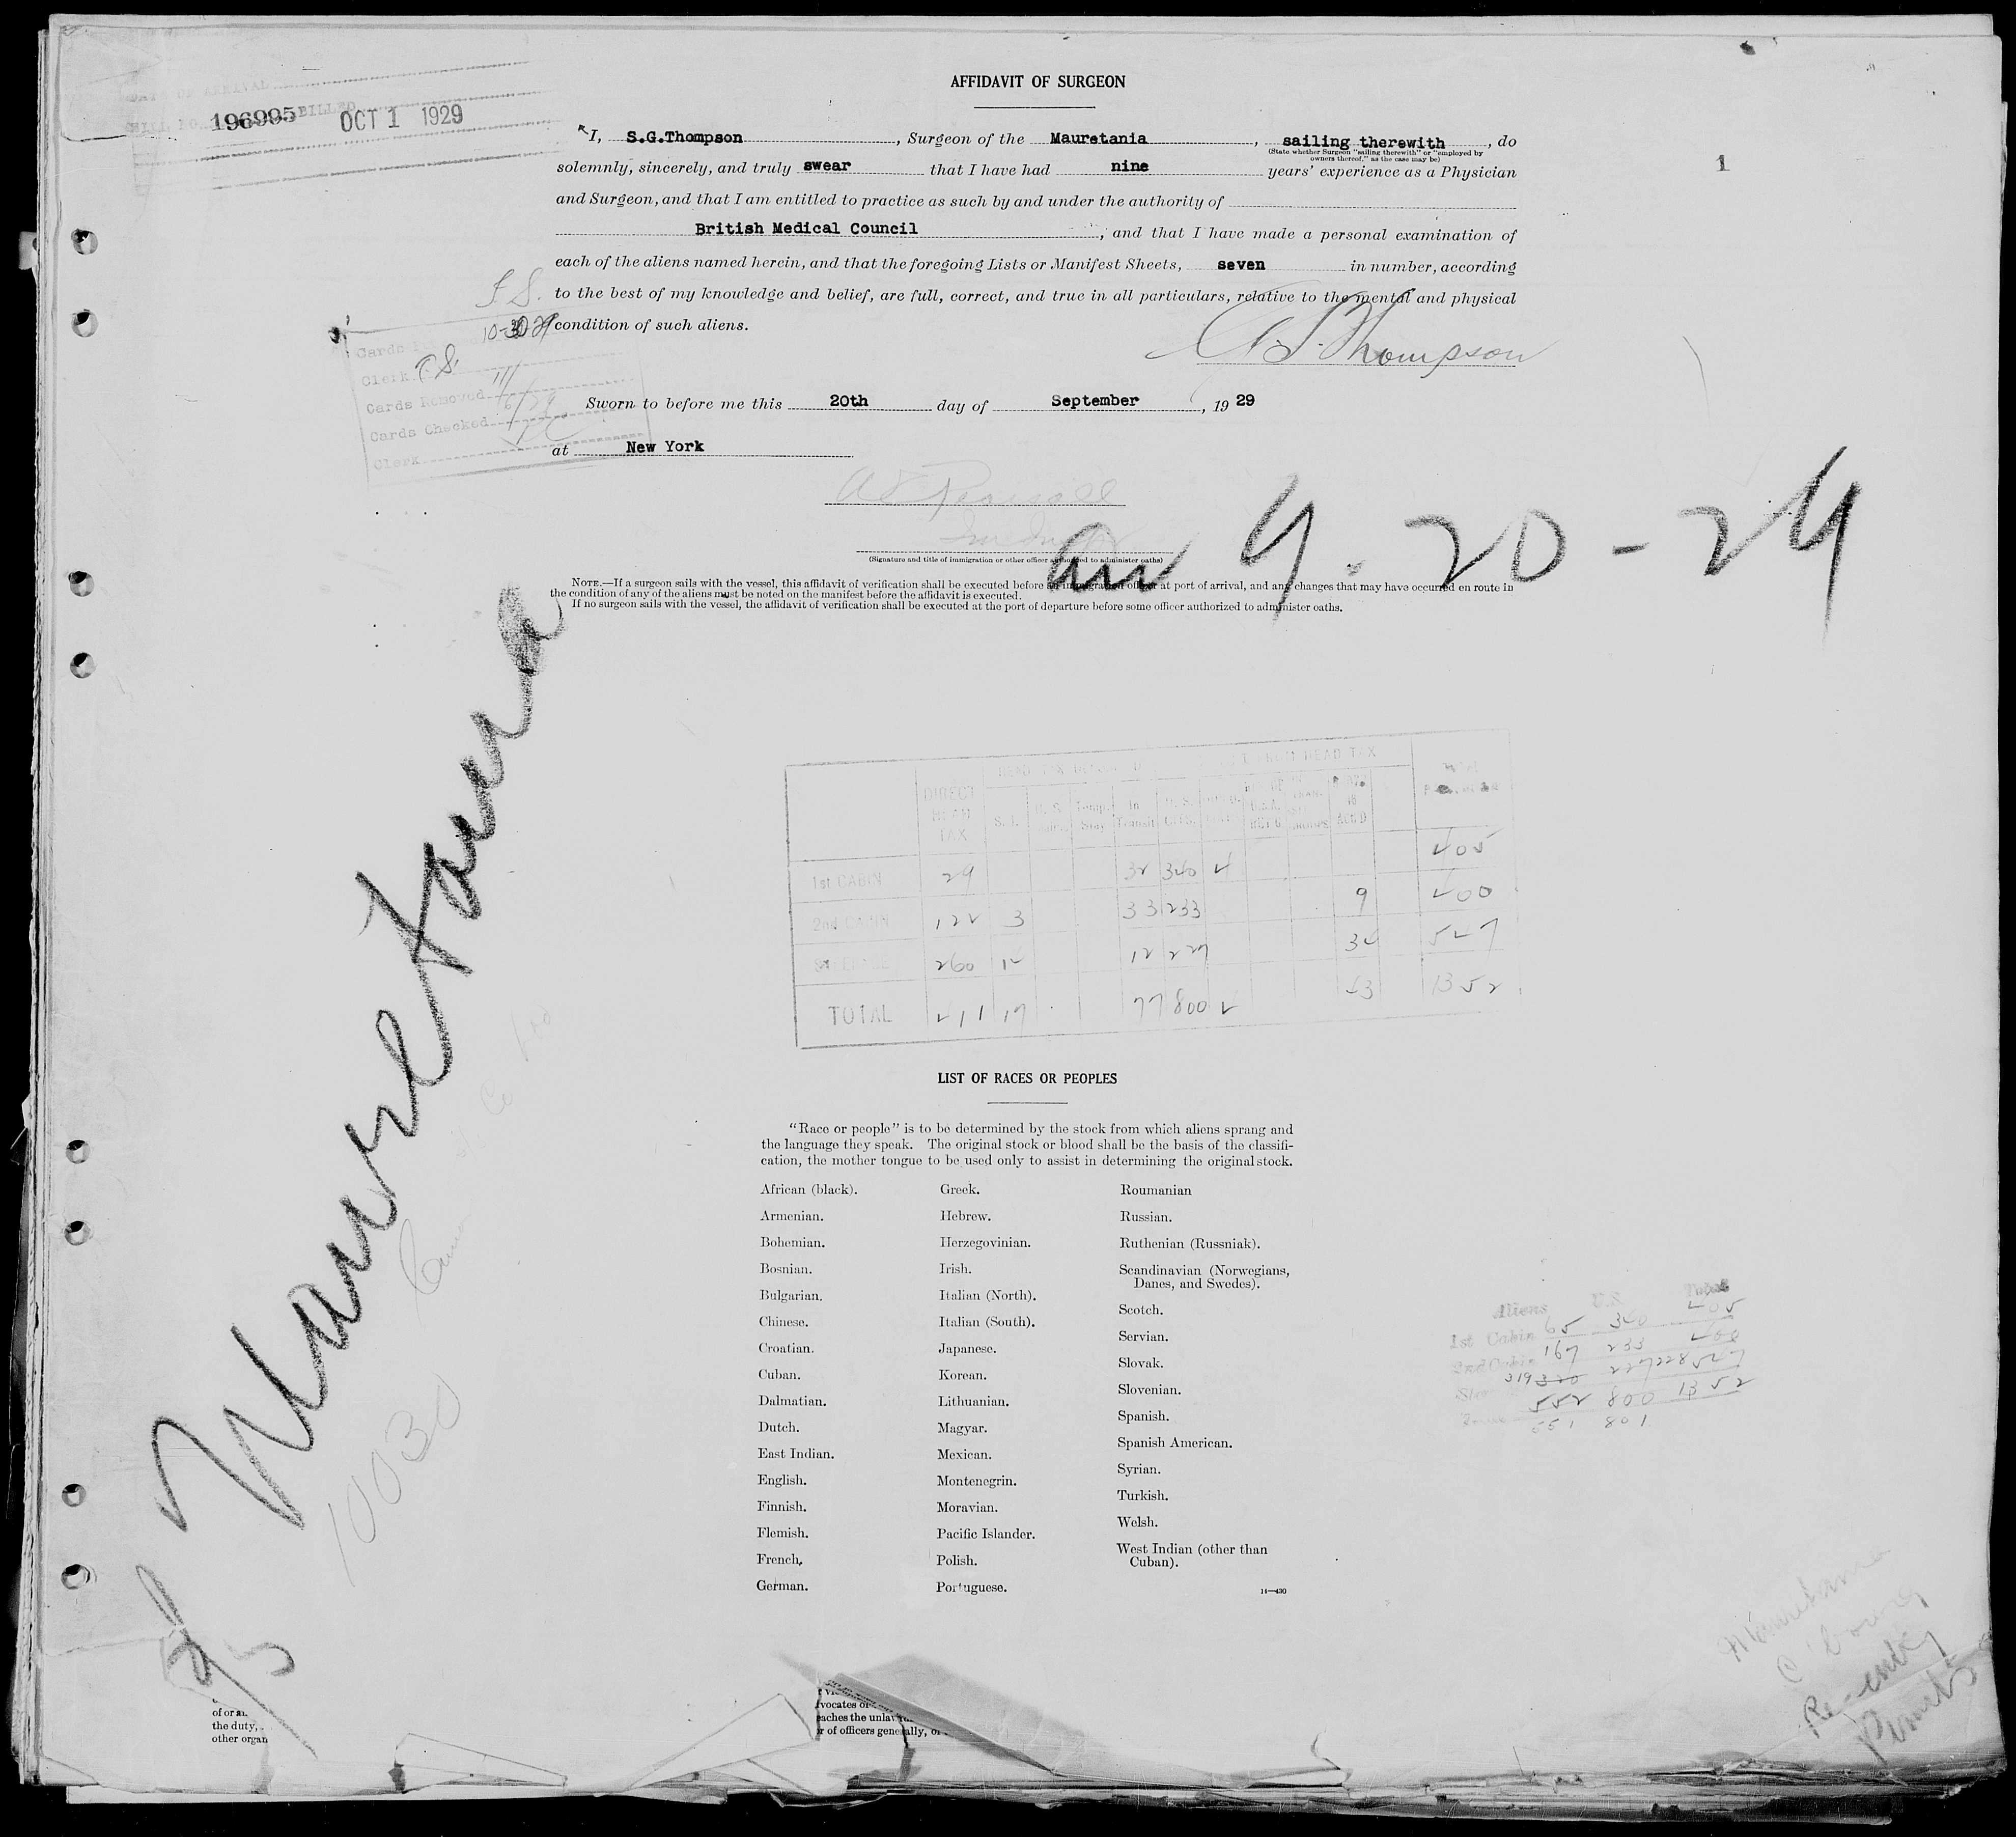 DATE OF ARRIVAL
BILL NO. 196995 BILLED OCT 1 1929
AFFIDAVIT OF SURGEON
I, S.G.Thompson, Surgeon of the Mauretania, sailing therewith, do
(State whether Surgeon "sailing therewith" or "employed by
owners thereof," as the case may be)
1
solemnly, sincerely, and truly swear that I have had nine years' experience as a Physician
and Surgeon, and that I am entitled to practice as such by and under the authority of
British Medical Council, and that I have made a personal examination of
each of the aliens named herein, and that the foregoing Lists or Manifest Sheets, seven in number, according
to the best of my knowledge and belief, are full, correct, and true in all particulars, relative to the mental and physical
condition of such aliens.
Thompson
Cards
Clerk
Cards Removed
Cards Checked
Clerk
Sworn to before me this 20th day of September, 1929
at New York
(Signature and title of immigration or other officer authorized to administer oaths)
arr 9-20-29
NOTE.—If a surgeon sails with the vessel, this affidavit of verification shall be executed before an immigration officer at port of arrival, and any changes that may have occurred en route in
the condition of any of the aliens must be noted on the manifest before the affidavit is executed.
If no surgeon sails with the vessel, the affidavit of verification shall be executed at the port of departure before some officer authorized to administer oaths.
Mauretania
10030
DIRECT HEAD TAX
S. I.
Temp. Stay
In Transit
U. S. CITS.
TOTAL
1st CABIN 29 32 340 4 405
2nd CABIN 122 3 33 233 9 400
STEERAGE 260 14 12 227 34 547
TOTAL 411 17 77 800 4 43 1352
LIST OF RACES OR PEOPLES
"Race or people" is to be determined by the stock from which aliens sprang and
the language they speak. The original stock or blood shall be the basis of the classifi-
cation, the mother tongue to be used only to assist in determining the original stock.
African (black).
Armenian.
Bohemian.
Bosnian.
Bulgarian.
Chinese.
Croatian.
Cuban.
Dalmatian.
Dutch.
East Indian.
English.
Finnish.
Flemish.
French.
German.
Greek.
Hebrew.
Herzegovinian.
Irish.
Italian (North).
Italian (South).
Japanese.
Korean.
Lithuanian.
Magyar.
Mexican.
Montenegrin.
Moravian.
Pacific Islander.
Polish.
Portuguese.
Roumanian
Russian.
Ruthenian (Russniak).
Scandinavian (Norwegians,
Danes, and Swedes).
Scotch.
Servian.
Slovak.
Slovenian.
Spanish.
Spanish American.
Syrian.
Turkish.
Welsh.
West Indian (other than
Cuban).
14—430
Aliens U.S. Total
1st Cabin 65 340 405
2nd Cabin 167 233 400
319 320 227 228 547
552 800 1352
551 801
Mauretania
Re-entry
Permits
of or
the duty,
other organ
vocates of
eaches the unla
r of officers generally, or